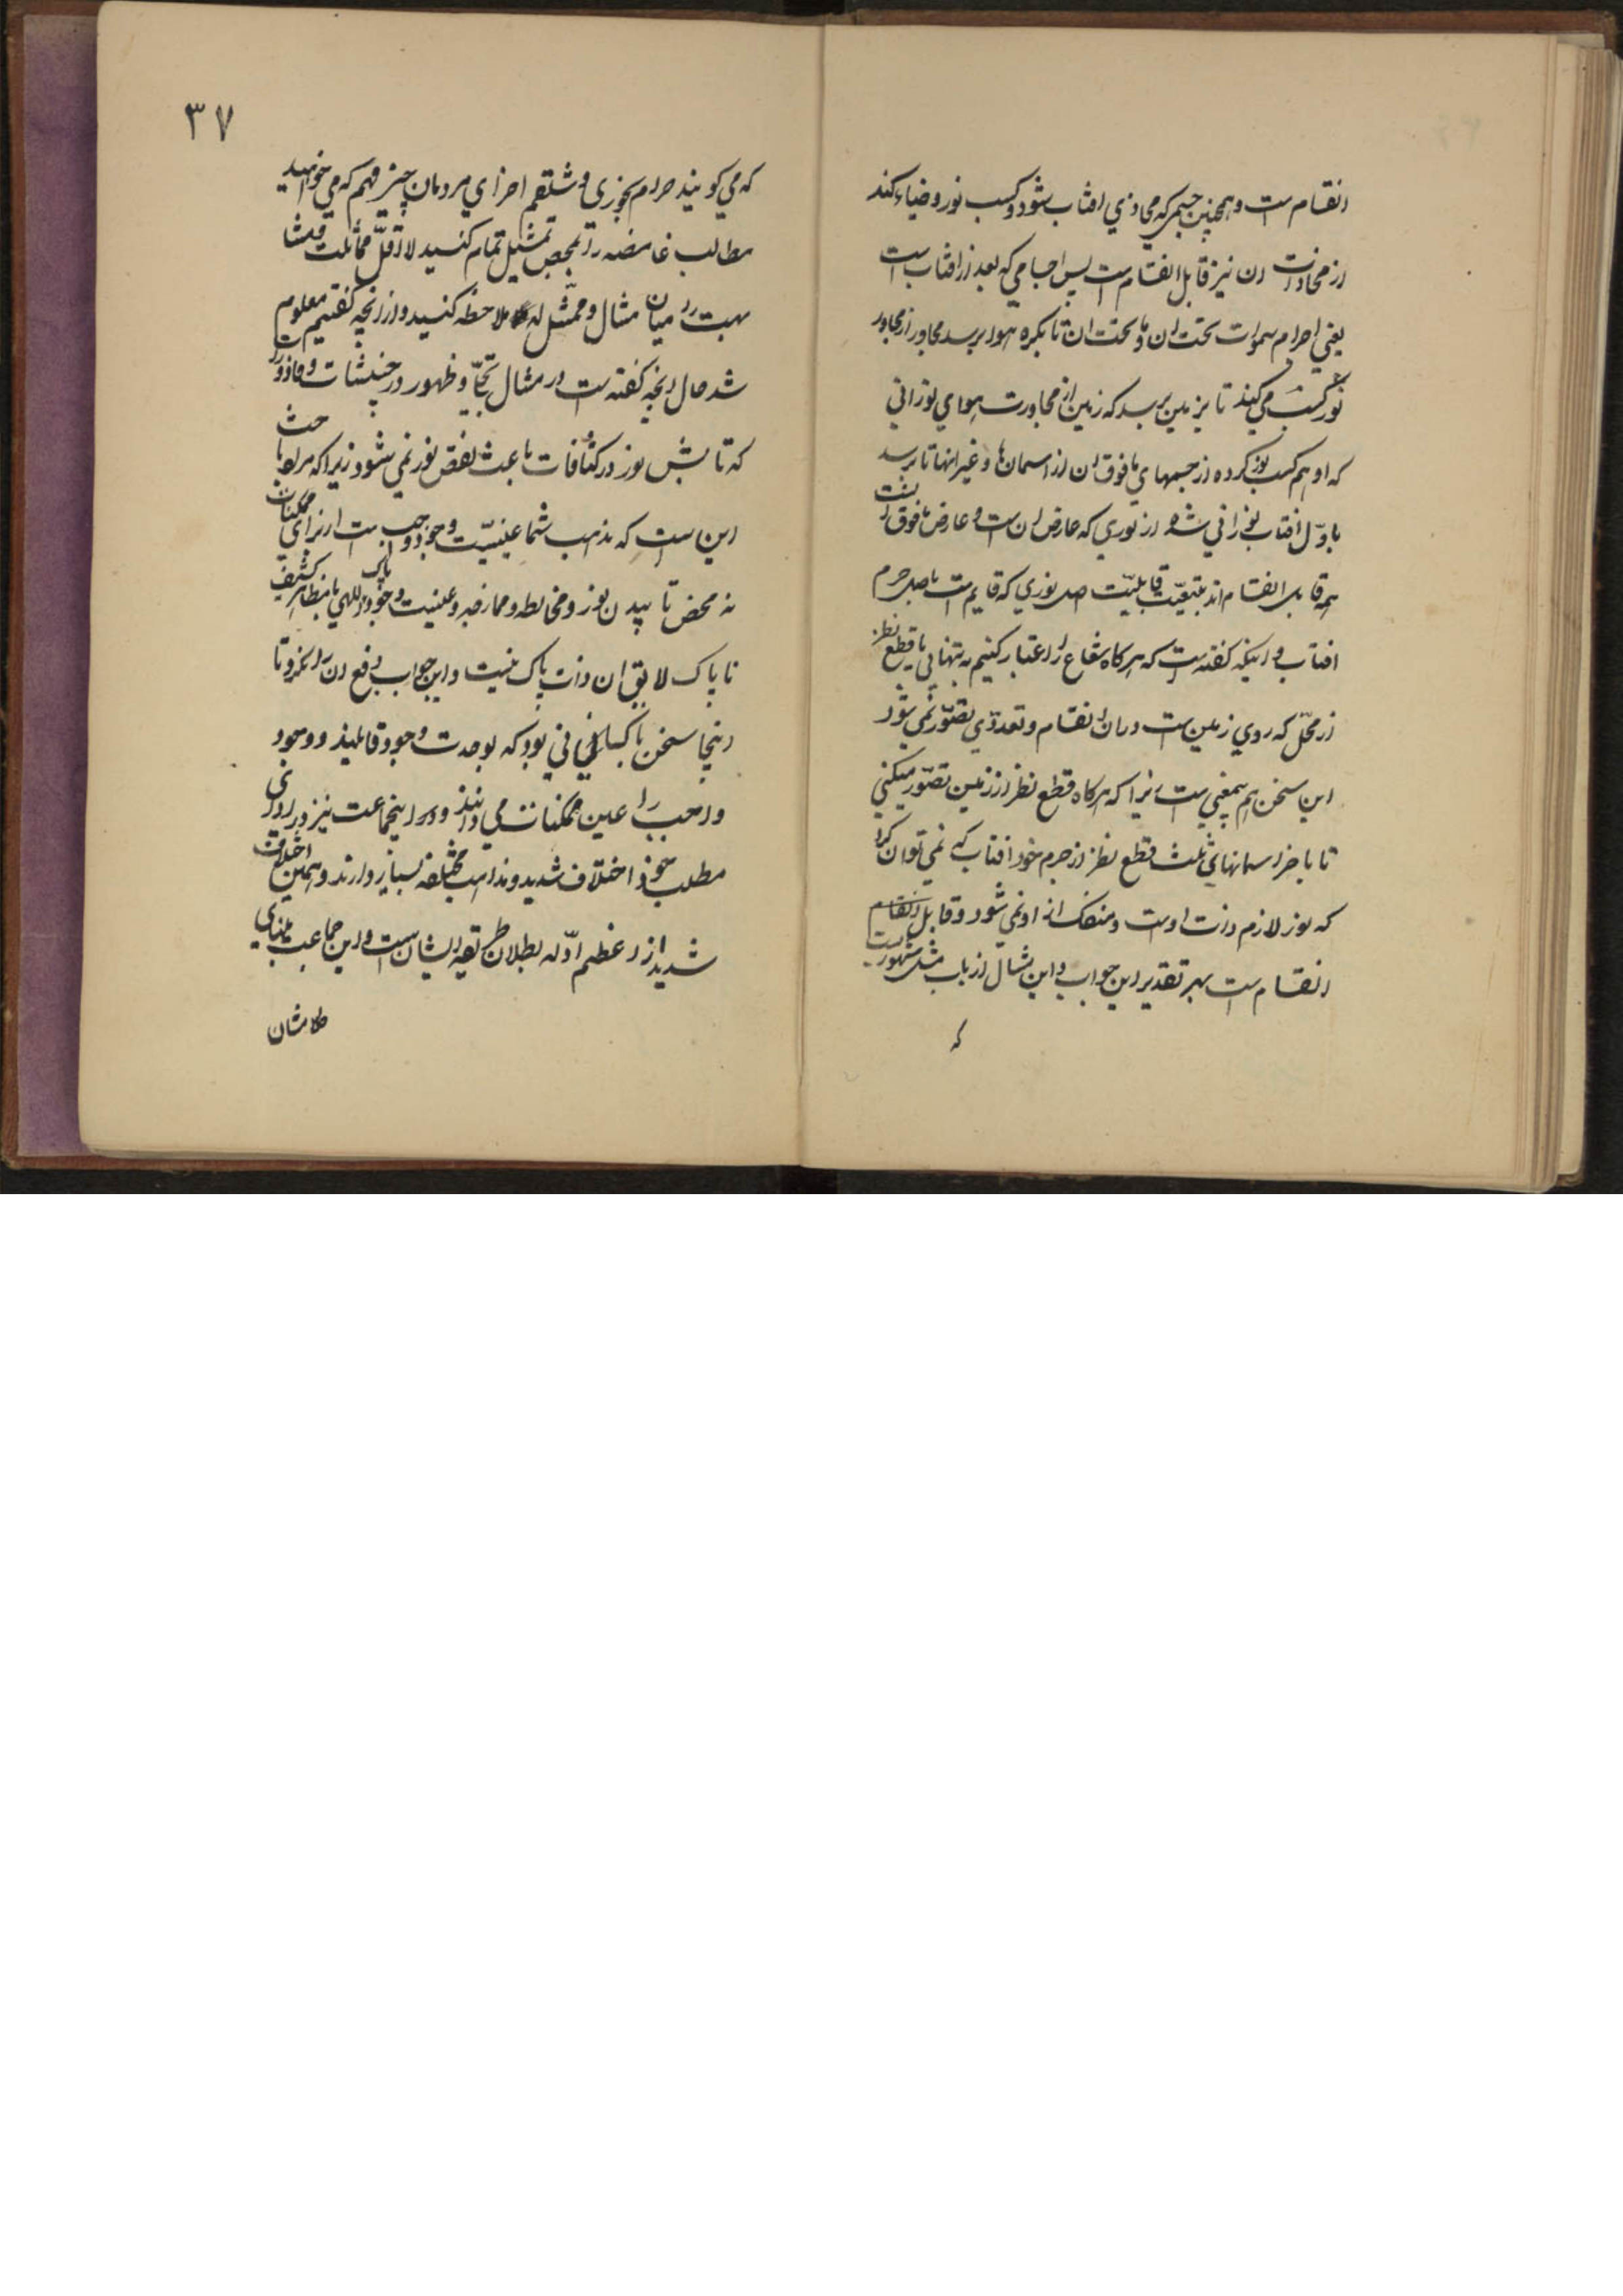 انقسام است و همچنین جسمی که محاذی افتاب شود و کسب نور و ضیاء کند
از محاذات ان نیز قابل انقسام است پس اجسامی که بعد از افتاب است
یعنی اجرام سموات تحت ان و ما تحت ان تا بکره هوا برسد مجاور از مجاور
نور کسب می کند تا بزمین برسد که زمین از مجاورت هوای نورانی
که او هم کسب نور کرده از جسمهای ما فوق ان از اسمان ها و غیر انها تا برسد
باول افتاب نورانی شده از نوری که عارض ان است و عارض ما فوق ان است
همه قابل انقسام اند بتبعیت قابلیت اصل نوری که قایم است باصل جرم
افتاب و اینکه کفته است که هر کاه شعاع را اعتبار کنیم به تنهایی با قطع نظر
از محل که روی زمین است در ان انقسام و تعددی تصور نمی شود
این سخن هم بیمعنی است زیرا که هر کاه قطع نظر از زمین تصور میکنی
تا باخر اسمانهای ثلث قطع نظر از جرم خود افتاب که نمی توان کرد
که نور لازم ذات اوست و منفک از او نمی شود و قابل انقسام
انقسام است بهر تقدیر این جواب و این مثال از باب مثل مشهور است
که
۳۷
که می کویند حرام بخوری و شلغم اخر ای مردمان چیز فهم که می خواهید
مطالب غامضه را بمحض تمثیل تمام کنید لا اقل مماثلت و مشا
بهت را در میان مثال و ممثل له ملاحظه کنید و از انچه کفتیم معلوم
شد حال انچه کفته است در مثال تجلی و ظهور در خبیثات و قاذورات
که تابش نور در کثافات باعث نقص نور نمی شود زیرا که مر او با حث
این است که مذهب شما عینیت وجود واجب است از برای ممکنات
نه محض تابیدن نور و مخالطه و ممازجه و عینیت وجود پاک اللهی با مظاهر کثیف
ناپاک لایق ان ذات پاک نیست و این جواب دفع ان را نکرد و تا
اینجا سخن با کسانی بود که بوحدت وجود قایلند و وجود
واجب را عین ممکنات می دانند و در اینجماعت نیز در ادای
مطلب خود اختلاف شدید و مذاهب مختلفه بسیار دارند و همین اختلاف
شدید از اعظم ادله بطلان طریقه ایشان است و این جماعت مبنای
کلامشان